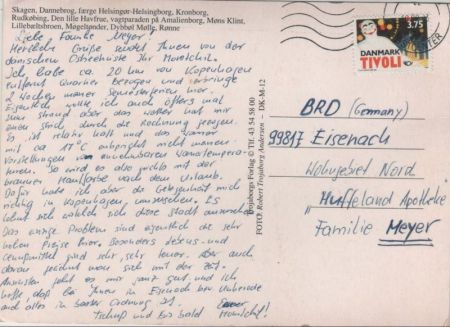 Skagen, Dannebrog, færge Helsingør-Helsingborg, Kronborg,
Rudkøbing, Den lille Havfrue, vagtparaden på Amalienborg, Møns Klint,
Lillebæltsbroen, Møgeltønder, Dybbøl Mølle, Rønne
Liebe Familie Meyer!
Herzliche Grüße sendet Ihnen von der
dänischen Ostseeküste Ihr
Ich habe ca. 20 km von Kopenhagen
entfernt Quartier bezogen und verbringe
2 Wochen meiner Semesterferien hier.
Eigentlich wollte ich auch öfters mal
zum Strand aber das Wetter hat mir
einen Strich durch die Rechnung gezogen.
Es ist relativ kalt und das Wasser
mit ca. 17°C entspricht nicht meinen
Vorstellungen von annehmbaren
So wird es also nichts mit
brauner Hautfarbe nach dem Urlaub.
Dafür habe ich aber die Gelegenheit mich
richtig in Kopenhagen umzusehen. Es
lohnt sich wirklich sich diese Stadt anzusehen.
Das einzige Problem sind eigentlich die sehr
hohen Preise hier. Besonders Lebens- und
Genußmittel sind sehr, sehr teuer. Aber auch
daran gewöhnt man sich mit der Zeit.
Ansonsten geht es mir ganz gut und ich
hoffe, daß bei Ihnen in Eisenach
auch alles in bester Ordnung ist.
Tschüß und bis bald
Trojaborgs Forlag © Tlf. 43 54 58 00 - DK-M-12
FOTO: Robert Trojaborg Andersen
3.75
DANMARK
TIVOLI
BRD (Germany)
99817 Eisenach
Wohngebiet Nord
"Huffeland Apotheke
Familie Meyer